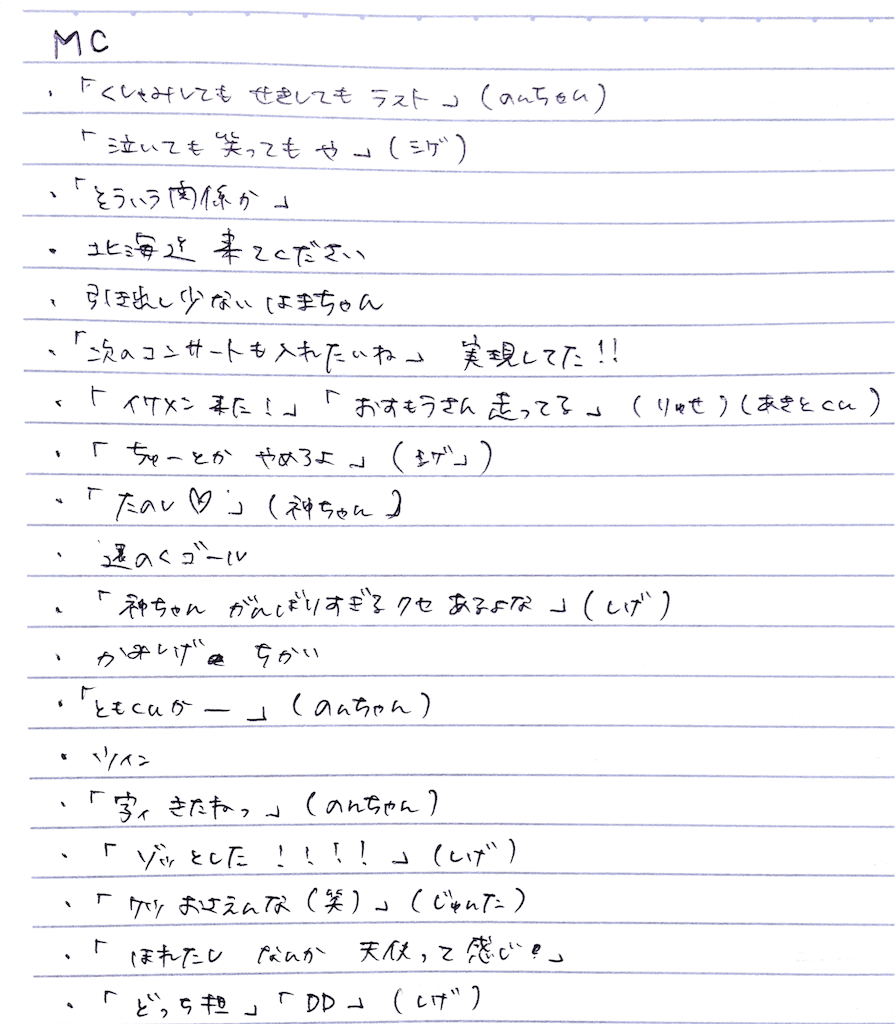 MC
・「くしゃみしても せきしても ラスト」(のんちゃん)
「泣いても笑っても や」(シゲ)
・「そういう関係か」
・北海道 来てください
・引き出し少ない はまちゃん
・「次のコンサートも入れたいね」 実現してた!!
・「イケメン 来た!」「おすもうさん 走ってる」(りゅせ)(あきとくん)
・「ちゅーとか やめろよ」(シゲ)
・「たのし♡」(神ちゃん)
・還のくゴール
・「神ちゃん がんばりすぎるクセ あるよな」(しげ)
・かみしげ ちかい
・「ともくんがー」(のんちゃん)
・ツイン
・「字ィ きたねっ」(のんちゃん)
・「ゾッとした!!!!」(しげ)
・「ケツ おさえんな(笑)」(じゅんた)
・「ほれたし なんか 天使って感じ!」
・「どっち担」「DD」(しげ)